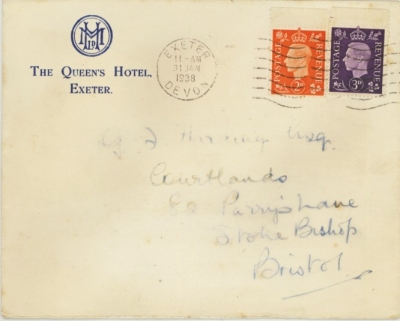 MH
Ltd
THE QUEEN'S HOTEL,
EXETER.
EXETER
11 - AM
31 JAN
1938
DEVON
POSTAGE REVENUE
2D
POSTAGE REVENUE
3D
Esq.
Courtlands
80 Parry's Lane
Stoke Bishop
Bristol